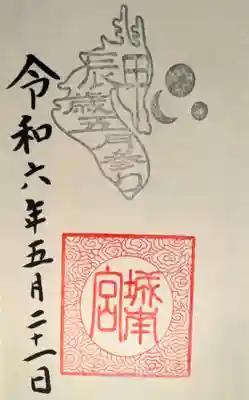 甲
辰
歳
五月
城南
宮
令和六年五月二十一日